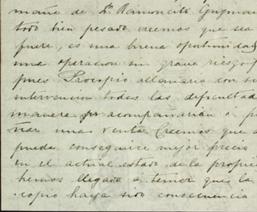 maño de Dn Ramoncito Guzman
todo bien pesado creemos que sea
fuere, es una buena oportunidad
una operacion sin grave riesgo
pues Procopio allanaria con su
intervencion todas las dificultad
manera por acompañarian a p
tizar una venta. Creemos que
pueda conseguirse mejor precio
en el actual estado de la propie
hemos llegado a temer que la
copio haya sido consecuencia